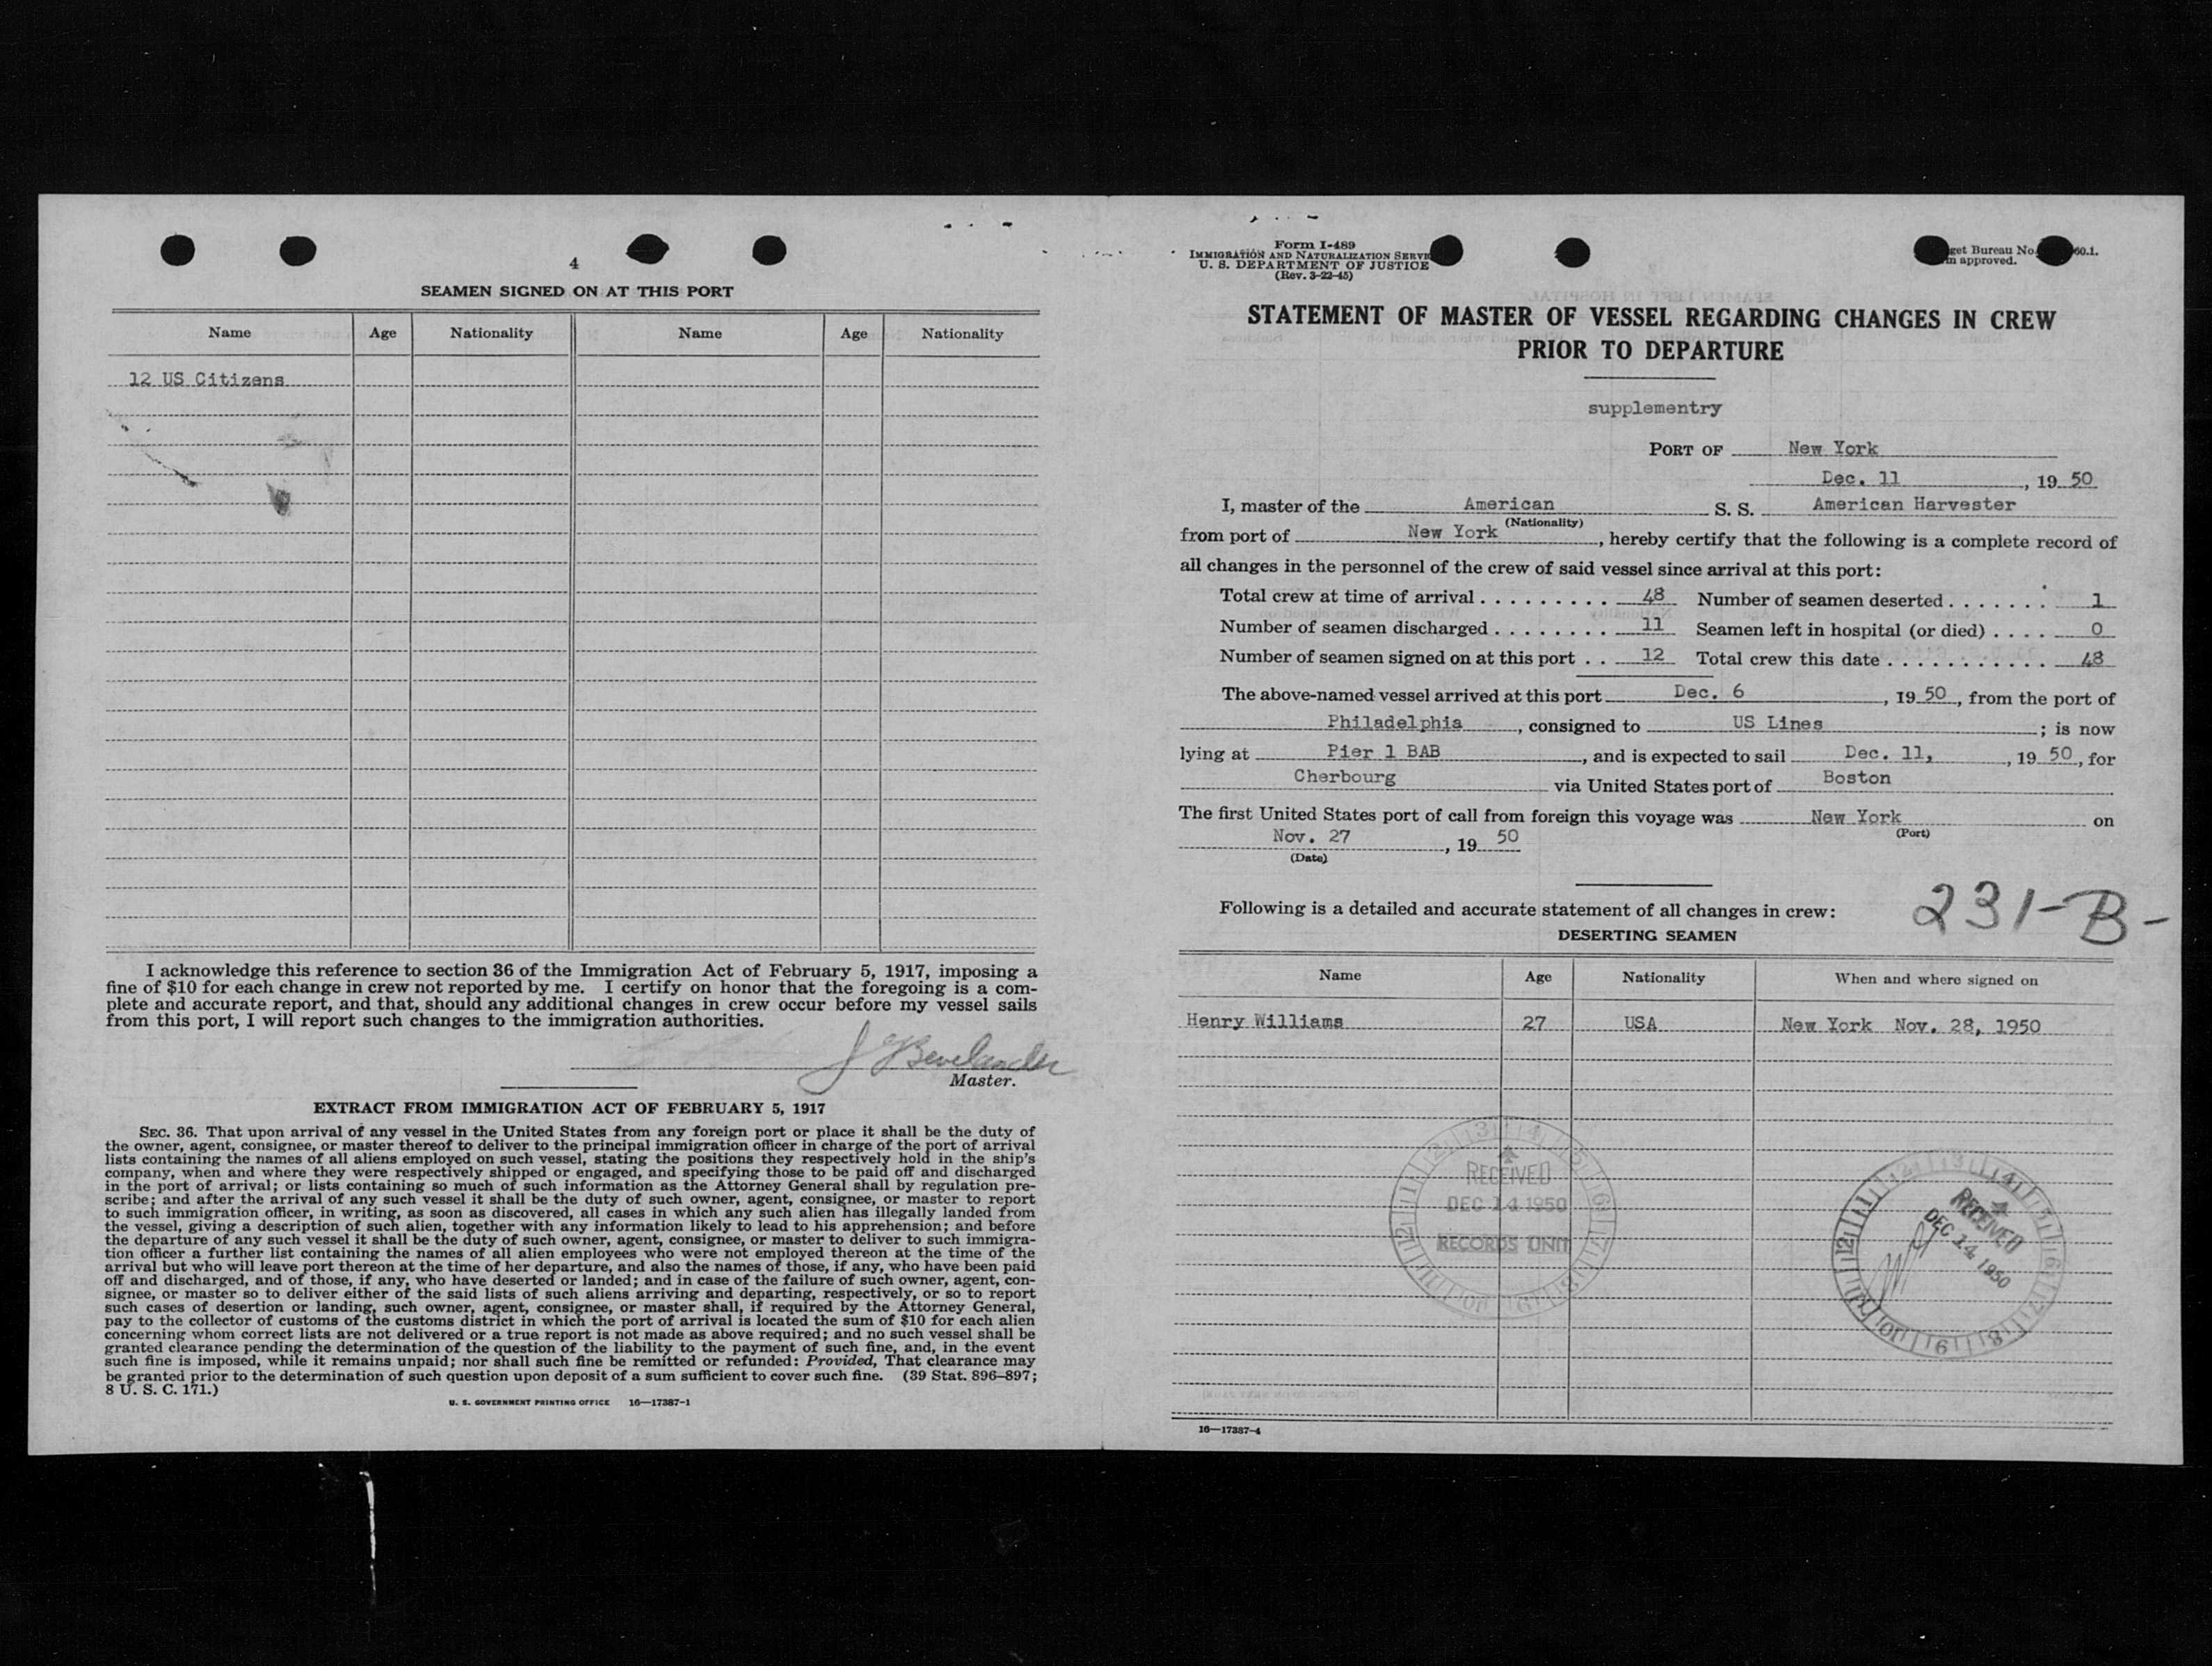 4
SEAMEN SIGNED ON AT THIS PORT
Name Age Nationality Name Age Nationality
12 US Citizens
I acknowledge this reference to section 36 of the Immigration Act of February 5, 1917, imposing a
fine of $10 for each change in crew not reported by me. I certify on honor that the foregoing is a com-
plete and accurate report, and that, should any additional changes in crew occur before my vessel sails
from this port, I will report such changes to the immigration authorities.
J Bevelander
Master.
EXTRACT FROM IMMIGRATION ACT OF FEBRUARY 5, 1917
SEC. 36. That upon arrival of any vessel in the United States from any foreign port or place it shall be the duty of
the owner, agent, consignee, or master thereof to deliver to the principal immigration officer in charge of the port of arrival
lists containing the names of all aliens employed on such vessel, stating the positions they respectively hold in the ship's
company, when and where they were respectively shipped or engaged, and specifying those to be paid off and discharged
in the port of arrival; or lists containing so much of such information as the Attorney General shall by regulation pre-
scribe; and after the arrival of any such vessel it shall be the duty of such owner, agent, consignee, or master to report
to such immigration officer, in writing, as soon as discovered, all cases in which any such alien has illegally landed from
the vessel, giving a description of such alien, together with any information likely to lead to his apprehension; and before
the departure of any such vessel it shall be the duty of such owner, agent, consignee, or master to deliver to such immigra-
tion officer a further list containing the names of all alien employees who were not employed thereon at the time of the
arrival but who will leave port thereon at the time of her departure, and also the names of those, if any, who have been paid
off and discharged, and of those, if any, who have deserted or landed; and in case of the failure of such owner, agent, con-
signee, or master so to deliver either of the said lists of such aliens arriving and departing, respectively, or so to report
such cases of desertion or landing, such owner, agent, consignee, or master shall, if required by the Attorney General,
pay to the collector of customs of the customs district in which the port of arrival is located the sum of $10 for each alien
concerning whom correct lists are not delivered or a true report is not made as above required; and no such vessel shall be
granted clearance pending the determination of the question of the liability to the payment of such fine, and, in the event
such fine is imposed, while it remains unpaid; nor shall such fine be remitted or refunded: Provided, That clearance may
be granted prior to the determination of such question upon deposit of a sum sufficient to cover such fine. (39 Stat. 896–897;
8 U. S. C. 171.)
U. S. GOVERNMENT PRINTING OFFICE 16—17387-1
Form I-489
IMMIGRATION AND NATURALIZATION SERVI
U. S. DEPARTMENT OF JUSTICE
(Rev. 3-22-45)
get Bureau No. 60.1.
approved.
STATEMENT OF MASTER OF VESSEL REGARDING CHANGES IN CREW
PRIOR TO DEPARTURE
supplementry
PORT OF New York
Dec. 11, 19 50
I, master of the American S. S. American Harvester
(Nationality)
from port of New York, hereby certify that the following is a complete record of
all changes in the personnel of the crew of said vessel since arrival at this port:
Total crew at time of arrival . . . . . . . . . 48 Number of seamen deserted . . . . . . . 1
Number of seamen discharged . . . . . . . . 11 Seamen left in hospital (or died) . . . . 0
Number of seamen signed on at this port . . 12 Total crew this date . . . . . . . . . . . 48
The above-named vessel arrived at this port Dec. 6, 19 50, from the port of
Philadelphia, consigned to US Lines; is now
lying at Pier 1 BAB, and is expected to sail Dec. 11,, 19 50, for
Cherbourg via United States port of Boston
The first United States port of call from foreign this voyage was New York on
(Port)
Nov. 27, 19 50
(Date)
231-B-
Following is a detailed and accurate statement of all changes in crew:
DESERTING SEAMEN
Name Age Nationality When and where signed on
Henry Williams 27 USA New York Nov. 28, 1950
RECEIVED
DEC 14 1950
RECORDS UNIT
RECEIVED
DEC 14 1950
16—17387-4